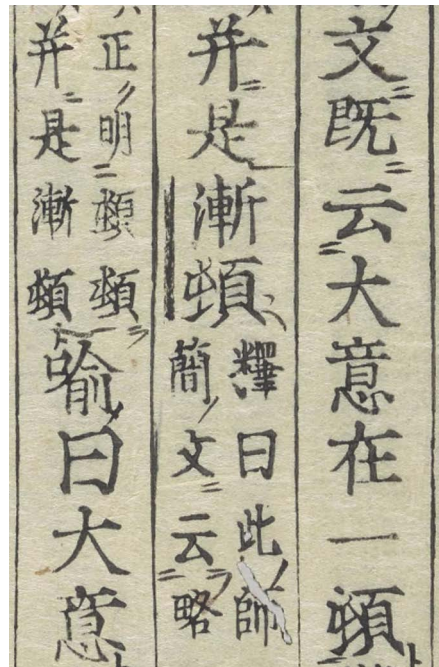 文既云大意在一頓
并是漸頓
釋曰此師
簡文云略
正明頓頓
并是漸頓
喻曰大意